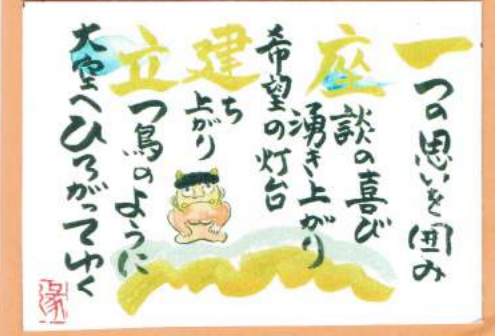 一つの思いを囲み
座談の喜び
湧き上がり
希望の灯台
建ち
上がり
立つ鳥のように
大空へひろがってゆく